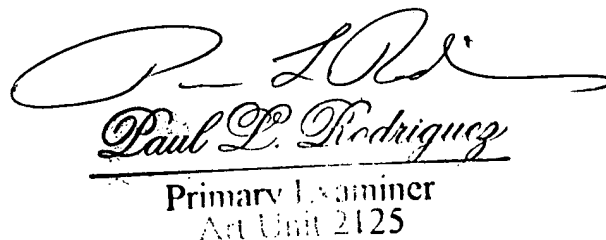 Paul L. Rodriguez
Primary Examiner
Art Unit 2125